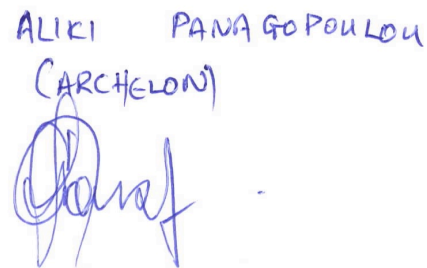 ALIKI PANAGOPOULOU
(ARCHELON)